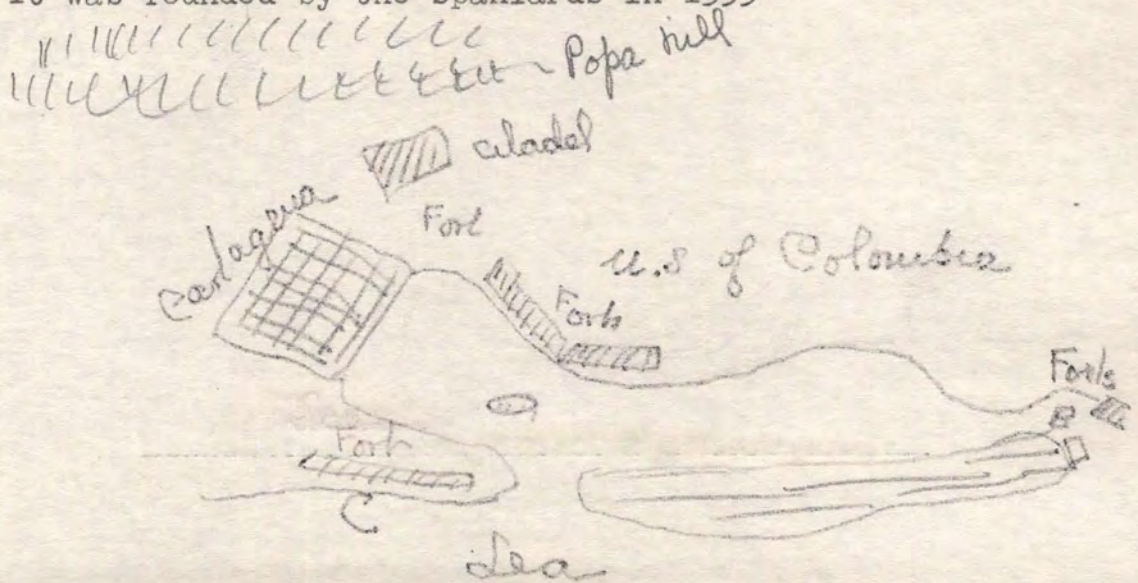 It was founded by the Spaniards in 1533
Popa hill
citadel
Cartagena
Fort
U.S of Colombia
Forts
Forts
Fort
C
Sea